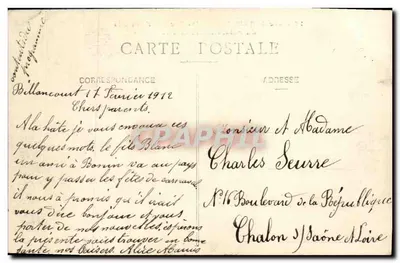 CARTE POSTALE
CORRESPONDANCE
ADRESSE
programme
Billancourt 17 Fevrier 1912
Chers parents.
A la hâte je vous envoie ces
quelques mots. le fils Blanc
un ami à Bonin va au pays
pour y passer les fête de carnaval
il nous à promis qu il irait
vous dire bonjour et vous
parler de nos nouvelles esperons
la présente vous trouver en bonne
santé
Monsieur & Madame
Charles Seurre
N 16 Boulevard de la République
Chalon s/Saône & Loire